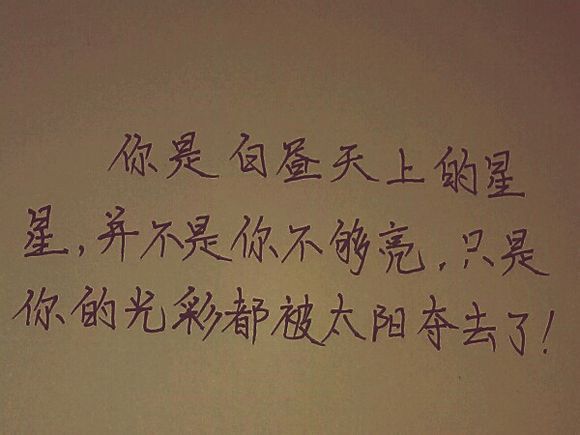 你是白昼天上的星
星,并不是你不够亮,只是
你的光彩都被太阳夺去了!